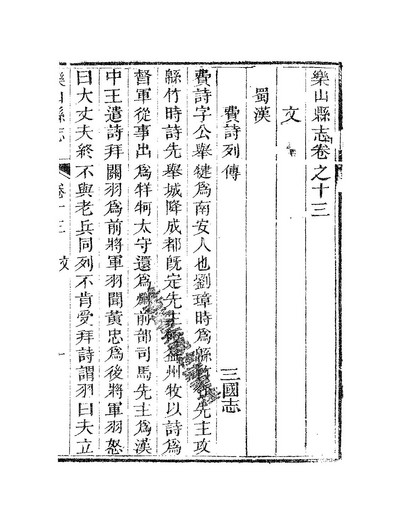 樂山縣志卷之十三
文
蜀漢
費詩列傳 三國志
費詩字公舉犍爲南安人也劉璋時爲縣竹 先主攻
緜竹時詩先舉城降成都旣定先主 益州牧以詩爲
督軍從事出爲牂牁太守還爲州前部司馬先主爲漢
中王遣詩拜關羽爲前將軍羽聞黃忠爲後將軍羽怒
曰大丈夫終不與老兵同列不肯受拜詩謂羽曰夫立
樂山縣志 卷十三 文 一